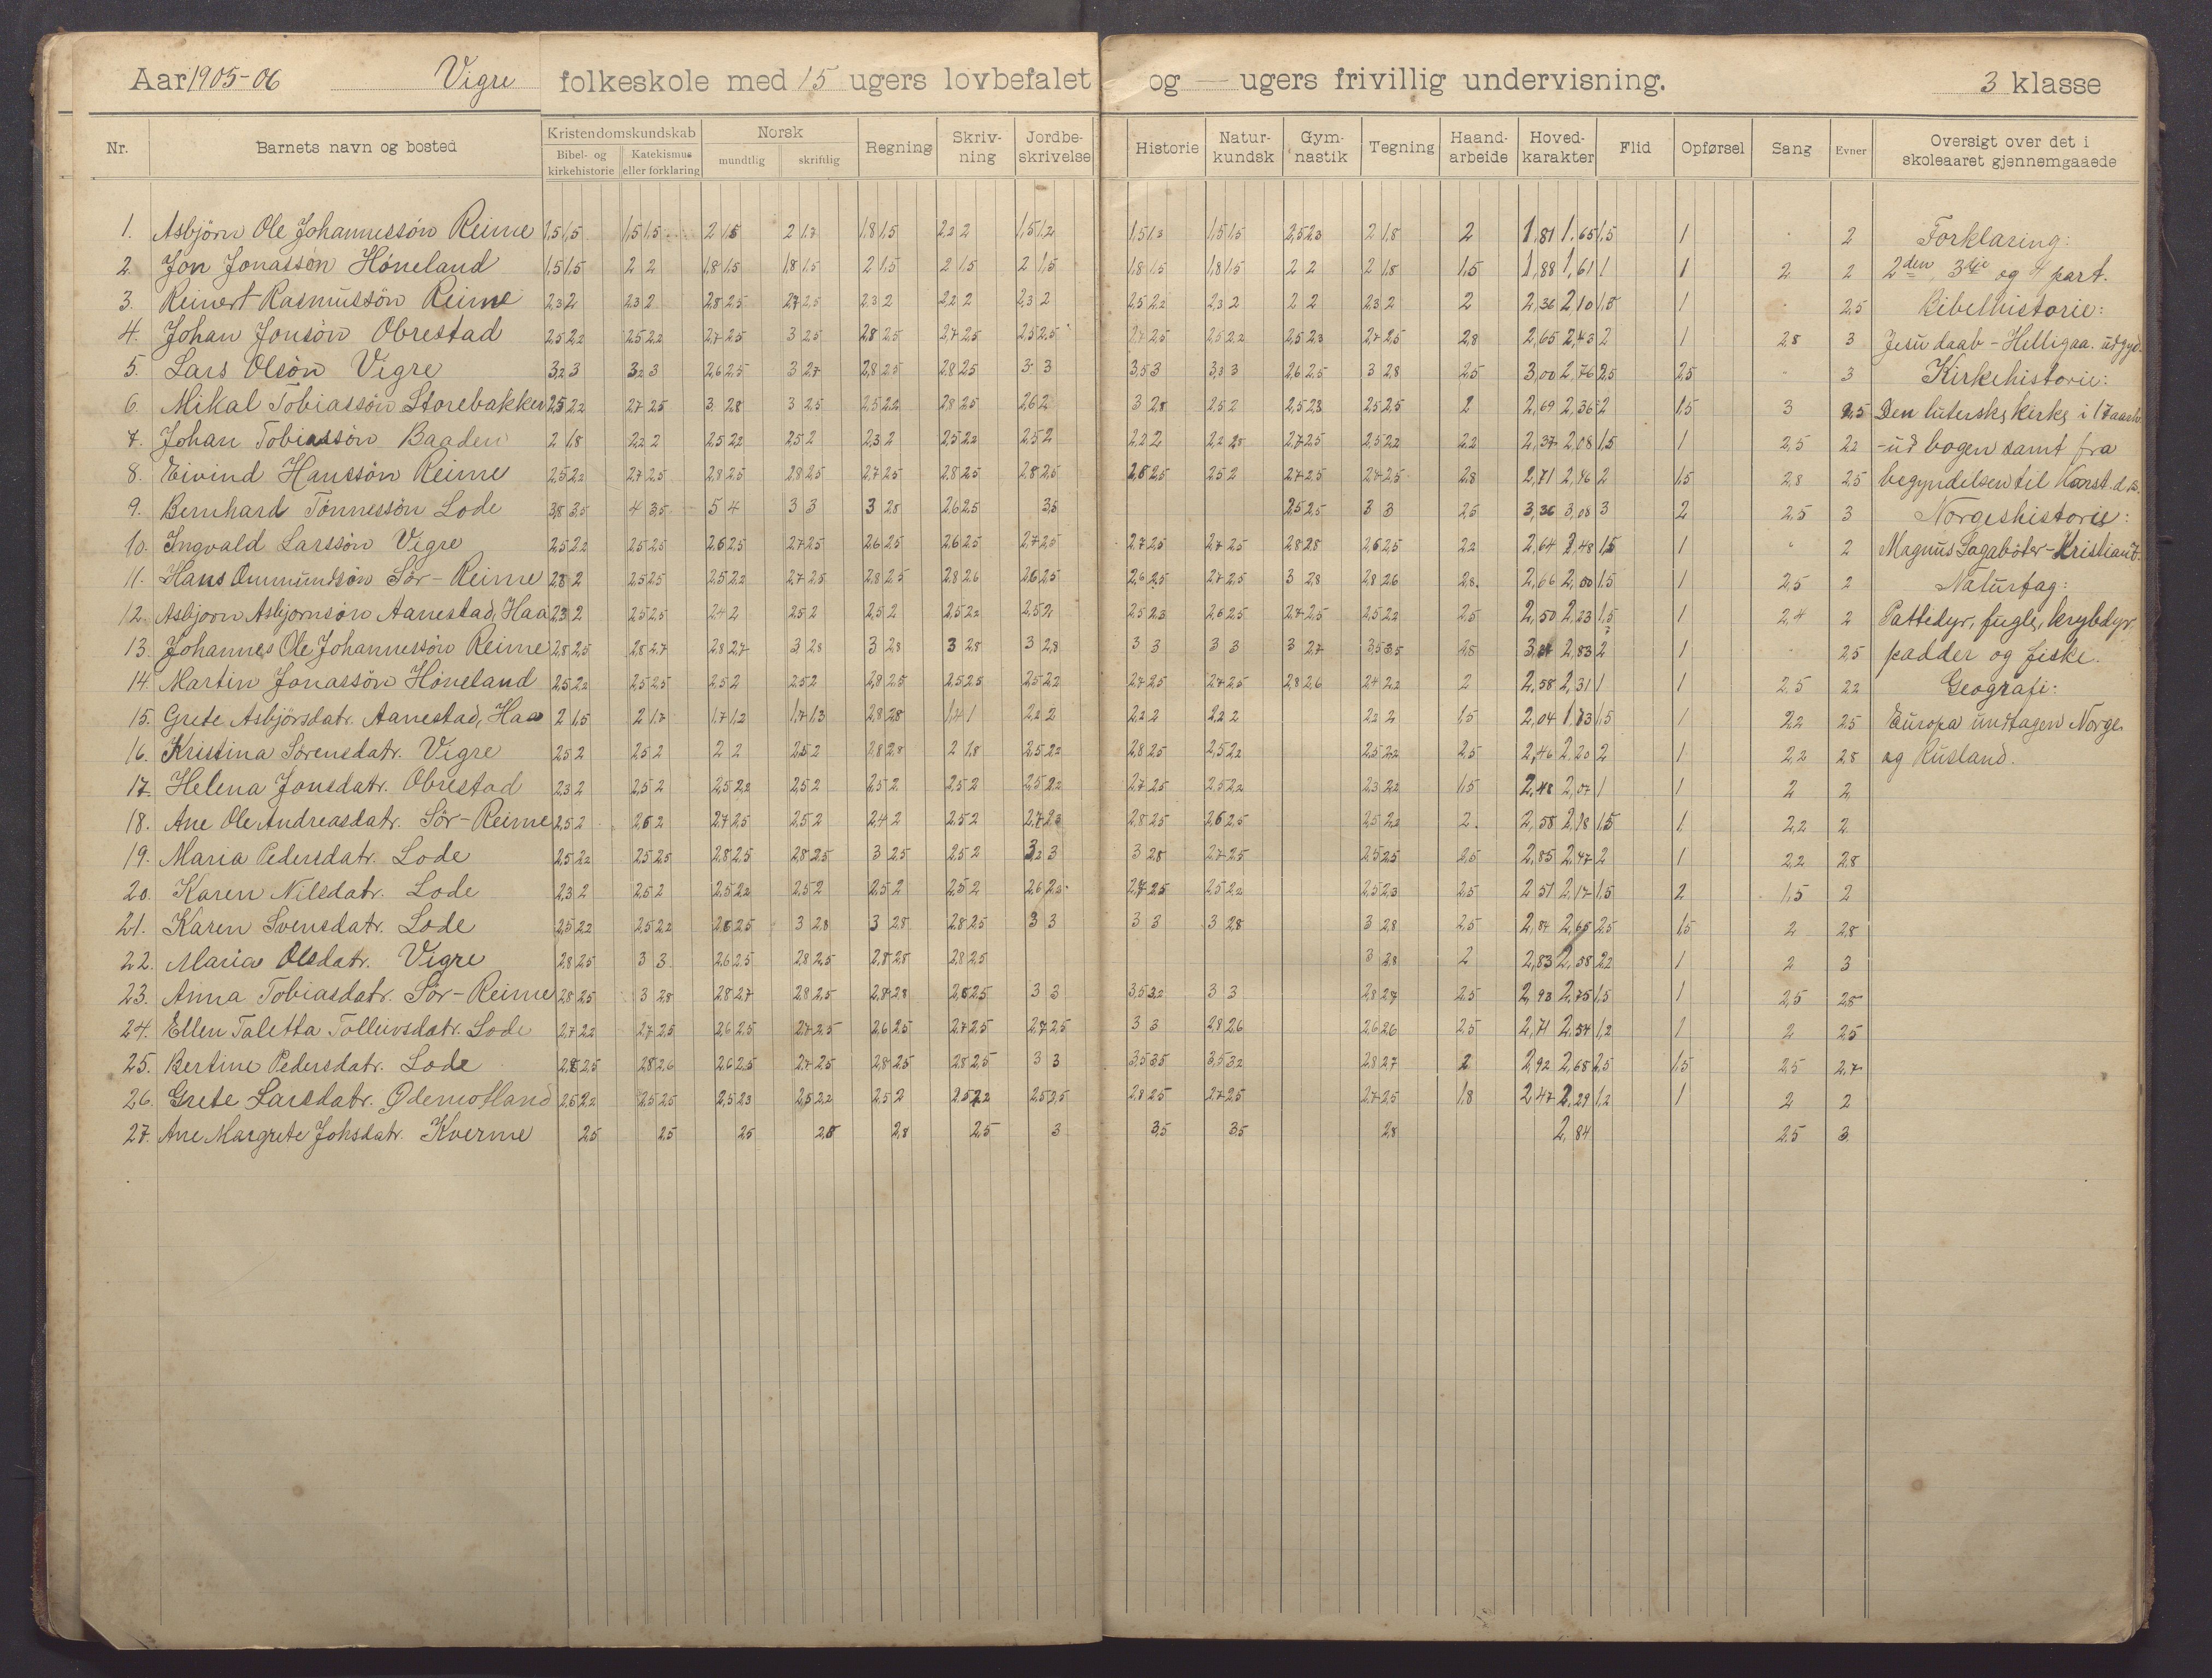 Aar 1905-06 Vigre folkeskole med 15 ugers lovbefalet og — ugers frivillig undervisning. 3 klasse
Nr. Barnets navn og bosted Kristendomskundskab Norsk Regning Skriv- Jordbe- Historie Natur- Gym- Tegning Haand- Hoved- Flid Opførsel Sang Evner Oversigt over det i
Bibel- og Katekismus mundtlig skriftlig ning skrivelse kundsk nastik arbeide karakter skoleaaret gjennemgaaede
kirkehistorie eller forklaring
1. Asbjörn Ole Johannessön Reime 1,5 1,5 1,5 1,5 2 1,5 2 1,7 1,8 1,5 2,2 2 1,5 1,2 1,5 1,3 1,5 1,5 2,5 2,3 2 1,8 2 1,81 1,65 1,5 1 2 Forklaring:
2. Jon Jonassön Höneland 1,5 1,5 2 2 1,8 1,5 1,8 1,5 2 1,5 2 1,5 2 1,5 1,8 1,5 1,8 1,5 2 2 2 1,8 1,5 1,88 1,61 1 1 2 2 2den 3die og 4 part.
3. Reinert Rasmussön Reime 2,3 2 2,3 2 2,8 2,5 2,7 2,5 2,3 2 2,2 2 2,3 2 2,5 2,2 2,3 2 2 2 2,3 2 2 2,36 2,10 1,5 1 2,5 Bibelhistorie:
4. Johan Jonsön Obrestad 2,5 2,2 2,5 2,2 2,7 2,5 3 2,5 2,8 2,5 2,7 2,5 2,5 2,5 2,7 2,5 2,5 2,2 2,5 2,3 2,7 2,5 2,8 2,65 2,43 2 1 2,8 3 Jesu daab - Helligaa. udgyd.
5. Lars Olsön Vigre 3,2 3 3,2 3 2,6 2,5 3 2,7 2,8 2,5 2,8 2,5 3 3 3,5 3 3,3 3 2,6 2,5 3 2,8 2,5 3,00 2,76 2,5 2,5 3 Kirkehistorie:
6. Mikal Tobiassön Storebakken 2,5 2,2 2,7 2,5 3 2,8 3 2,5 2,5 2,2 2,8 2,5 2,6 2 3 2,8 2,5 2 2,5 2,3 2,5 2,5 2 2,69 2,36 2 1,5 3 2,5 Den luterske kirke i 17 aarh.
7. Johan Tobiassön Baaden 2 1,8 2,2 2 2,5 2,2 2,5 2 2,3 2 2,5 2,2 2,5 2 2,2 2 2,2 2,5 2,7 2,5 2,5 2,2 2,2 2,37 2,08 1,5 1 2,5 2,2 - ud bogen samt fra
8. Eivind Hanssön Reime 2,5 2,2 2,7 2,5 2,8 2,5 2,8 2,5 2,7 2,5 2,8 2,5 2,8 2,5 2,8 2,5 2,5 2 2,7 2,5 2,7 2,5 2,8 2,71 2,46 2 1,5 2,8 2,5 begyndelsen til Konst. d. s.
9. Bernhard Tönnessön Lode 3,8 3,5 4 3,5 5 4 3 3 3 2,8 2,6 2,5 3,5 2,5 2,5 3 3 2,5 3,36 3,08 3 2 2,5 3 Norgeshistorie:
10. Ingvald Larssön Vigre 2,5 2,2 2,5 2,5 2,6 2,5 2,7 2,5 2,6 2,5 2,6 2,5 2,7 2,5 2,7 2,5 2,7 2,5 2,8 2,8 2,6 2,5 2,2 2,64 2,48 1,5 1 2 Magnus Lagaböter - Kristian 7.
11. Hans Ommundsön Sör-Reime 2,3 2 2,5 2,5 2,5 2,2 2,7 2,5 2,8 2,5 2,8 2,6 2,6 2,5 2,6 2,5 2,7 2,5 3 2,8 2,8 2,6 2,8 2,66 2,50 1,5 1 2,5 2 Naturfag:
12. Asbjorn Asbjornsön Aanestad, Haa 2,3 2 2,5 2,5 2,4 2 2,5 2 2,5 2 2,5 2,2 2,5 2 2,5 2,3 2,6 2,5 2,7 2,5 2,5 2,2 2,5 2,50 2,23 1,5 1 2,4 2 Pattedyr, fugle, krybdyr,
13. Johannes Ole Johannessön Reime 2,8 2,5 2,8 2,7 2,8 2,7 3 2,8 3 2,8 3 2,8 3 2,8 3 3 3 3 3 2,7 3,5 3,5 2,5 2,83 2 1 2,5 padder og fiske.
14. Martin Jonassön Höneland 2,5 2,2 2,5 2,5 2,5 2 2,5 2 2,8 2,5 2,5 2,5 2,5 2,2 2,7 2,5 2,7 2,5 2,8 2,6 2,4 2,2 2 2,58 2,31 1 1 2,5 2,2 Geografi:
15. Grete Asbjörsdatr. Aanestad, Haa 2 1,5 2 1,7 1,7 1,2 1,7 1,3 2,8 2,8 1,4 1 2,2 2 2,2 2 2,2 2 2,2 2 1,5 2,04 1,73 1,5 1 2,2 2,5 Europa undtagen Norge
16. Kristina Sörensdatr. Vigre 2,5 2 2,5 2 2 2 2,5 2 2,8 2,8 2 1,8 2,5 2,2 2,8 2,5 2,5 2,2 2,5 2,2 2,5 2,46 2,20 2 1 2,2 2,8 og Rusland.
17. Helena Jonsdatr. Obrestad 2,3 2 2,5 2 2,5 2,2 2,5 2 2,5 2 2,5 2 2,5 2,2 2,7 2,5 2,5 2,2 2,3 2,2 1,5 2,48 2,07 1 1 2 2
18. Ane Ole Andreasdatr. Sör-Reime 2,5 2 2,6 2 2,7 2,5 2,5 2 2,4 2 2,5 2 2,7 2,3 2,8 2,5 2,6 2,5 2,5 2,2 2 2,58 2,18 1,5 1 2,2 2
19. Maria Pedersdatr. Lode 2,5 2,2 2,5 2,5 2,8 2,5 2,8 2,5 3 2,5 2,5 2 3,2 3 3 2,8 2,7 2,5 2,5 2,5 2,5 2,85 2,47 2 1 2,2 2,8
20. Karen Nilsdatr. Lode 2,3 2 2,5 2 2,5 2,2 2,5 2 2,5 2 2,5 2 2,6 2,5 2,7 2,5 2,5 2,2 2,5 2,3 2,5 2,51 2,17 1,5 2 1,5 2
21. Karen Svensdatr. Lode 2,5 2,2 2,5 2,2 2,6 2,5 3 2,8 3 2,8 2,8 2,5 3 3 3 3 3 2,8 3 2,8 2,5 2,87 2,65 2,5 1,5 2 2,8
22. Maria Olsdatr. Vigre 2,8 2,5 3 3 2,6 2,5 2,8 2,5 2,8 2,8 2,8 2,5 3 2,8 2 2,83 2,58 2,2 1 2 3
23. Anna Tobiasdatr. Sör-Reime 2,8 2,5 3 2,8 2,8 2,7 2,8 2,5 2,8 2,8 2,6 2,5 3 3 3,5 3,2 3 3 2,8 2,7 2,5 2,93 2,75 1,5 1 2,5 2,8
24. Ellen Taletta Tolleivsdatr. Lode 2,7 2,2 2,7 2,5 2,6 2,5 2,7 2,5 2,6 2,5 2,7 2,5 2,7 2,5 3 3 2,8 2,6 2,6 2,6 2,5 2,71 2,54 1,2 1 2 2,5
25. Bertine Pedersdatr. Lode 2,8 2,5 2,8 2,6 2,6 2,5 2,7 2,5 2,8 2,5 2,8 2,5 3 3 3,5 3,5 3,5 3,2 2,8 2,7 2 2,92 2,68 2,5 1,5 2,5 2,7
26. Grete Larsdatr. Ødemotland 2,5 2,2 2,5 2,5 2,5 2,3 2,5 2,2 2,5 2 2,5 2,2 2,5 2,5 2,8 2,5 2,7 2,5 2,7 2,5 1,8 2,47 2,29 1,2 1 2 2
27. Ane Margrete Johsdatr. Kverme 2,5 2,5 2,5 2,8 2,8 2,5 3 3,5 3,5 2,8 2,84 2,5 3